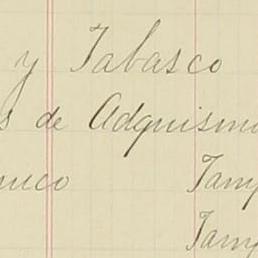 y Tabasco
s de Adquismo
nuco Tamp
Tamp